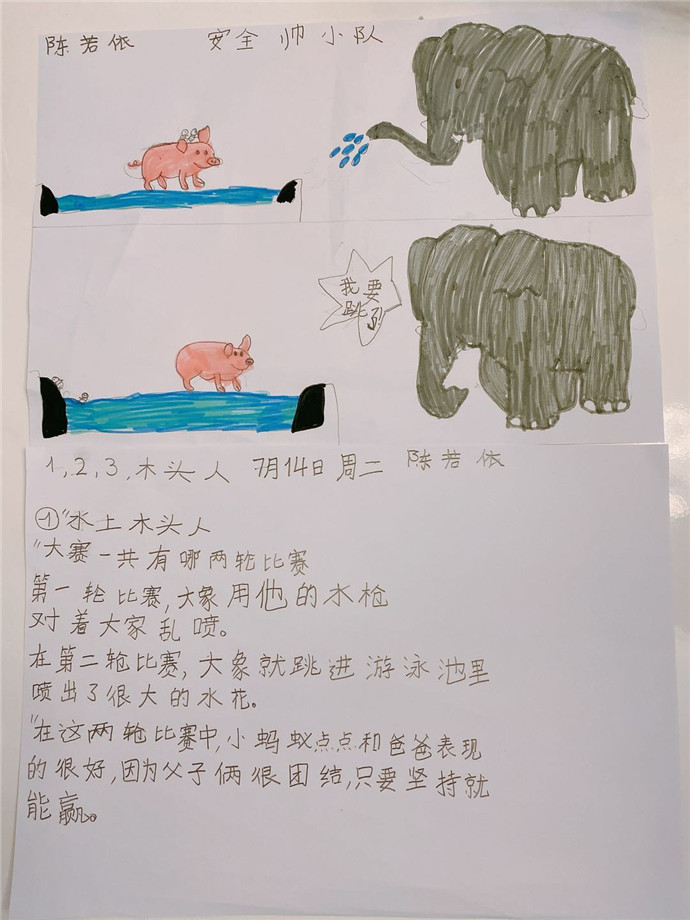 陈若依 安全帅小队
我要
跳了
1,2,3,木头人 7月14日 周二 陈若依
①"水上木头人
"大赛一共有哪两轮比赛
第一轮比赛,大象用他的水枪
对着大家乱喷。
在第二轮比赛,大象就跳进游泳池里
喷出了很大的水花。
"在这两轮比赛中,小蚂蚁点点和爸爸表现
的很好,因为父子俩很团结,只要坚持就
能赢。